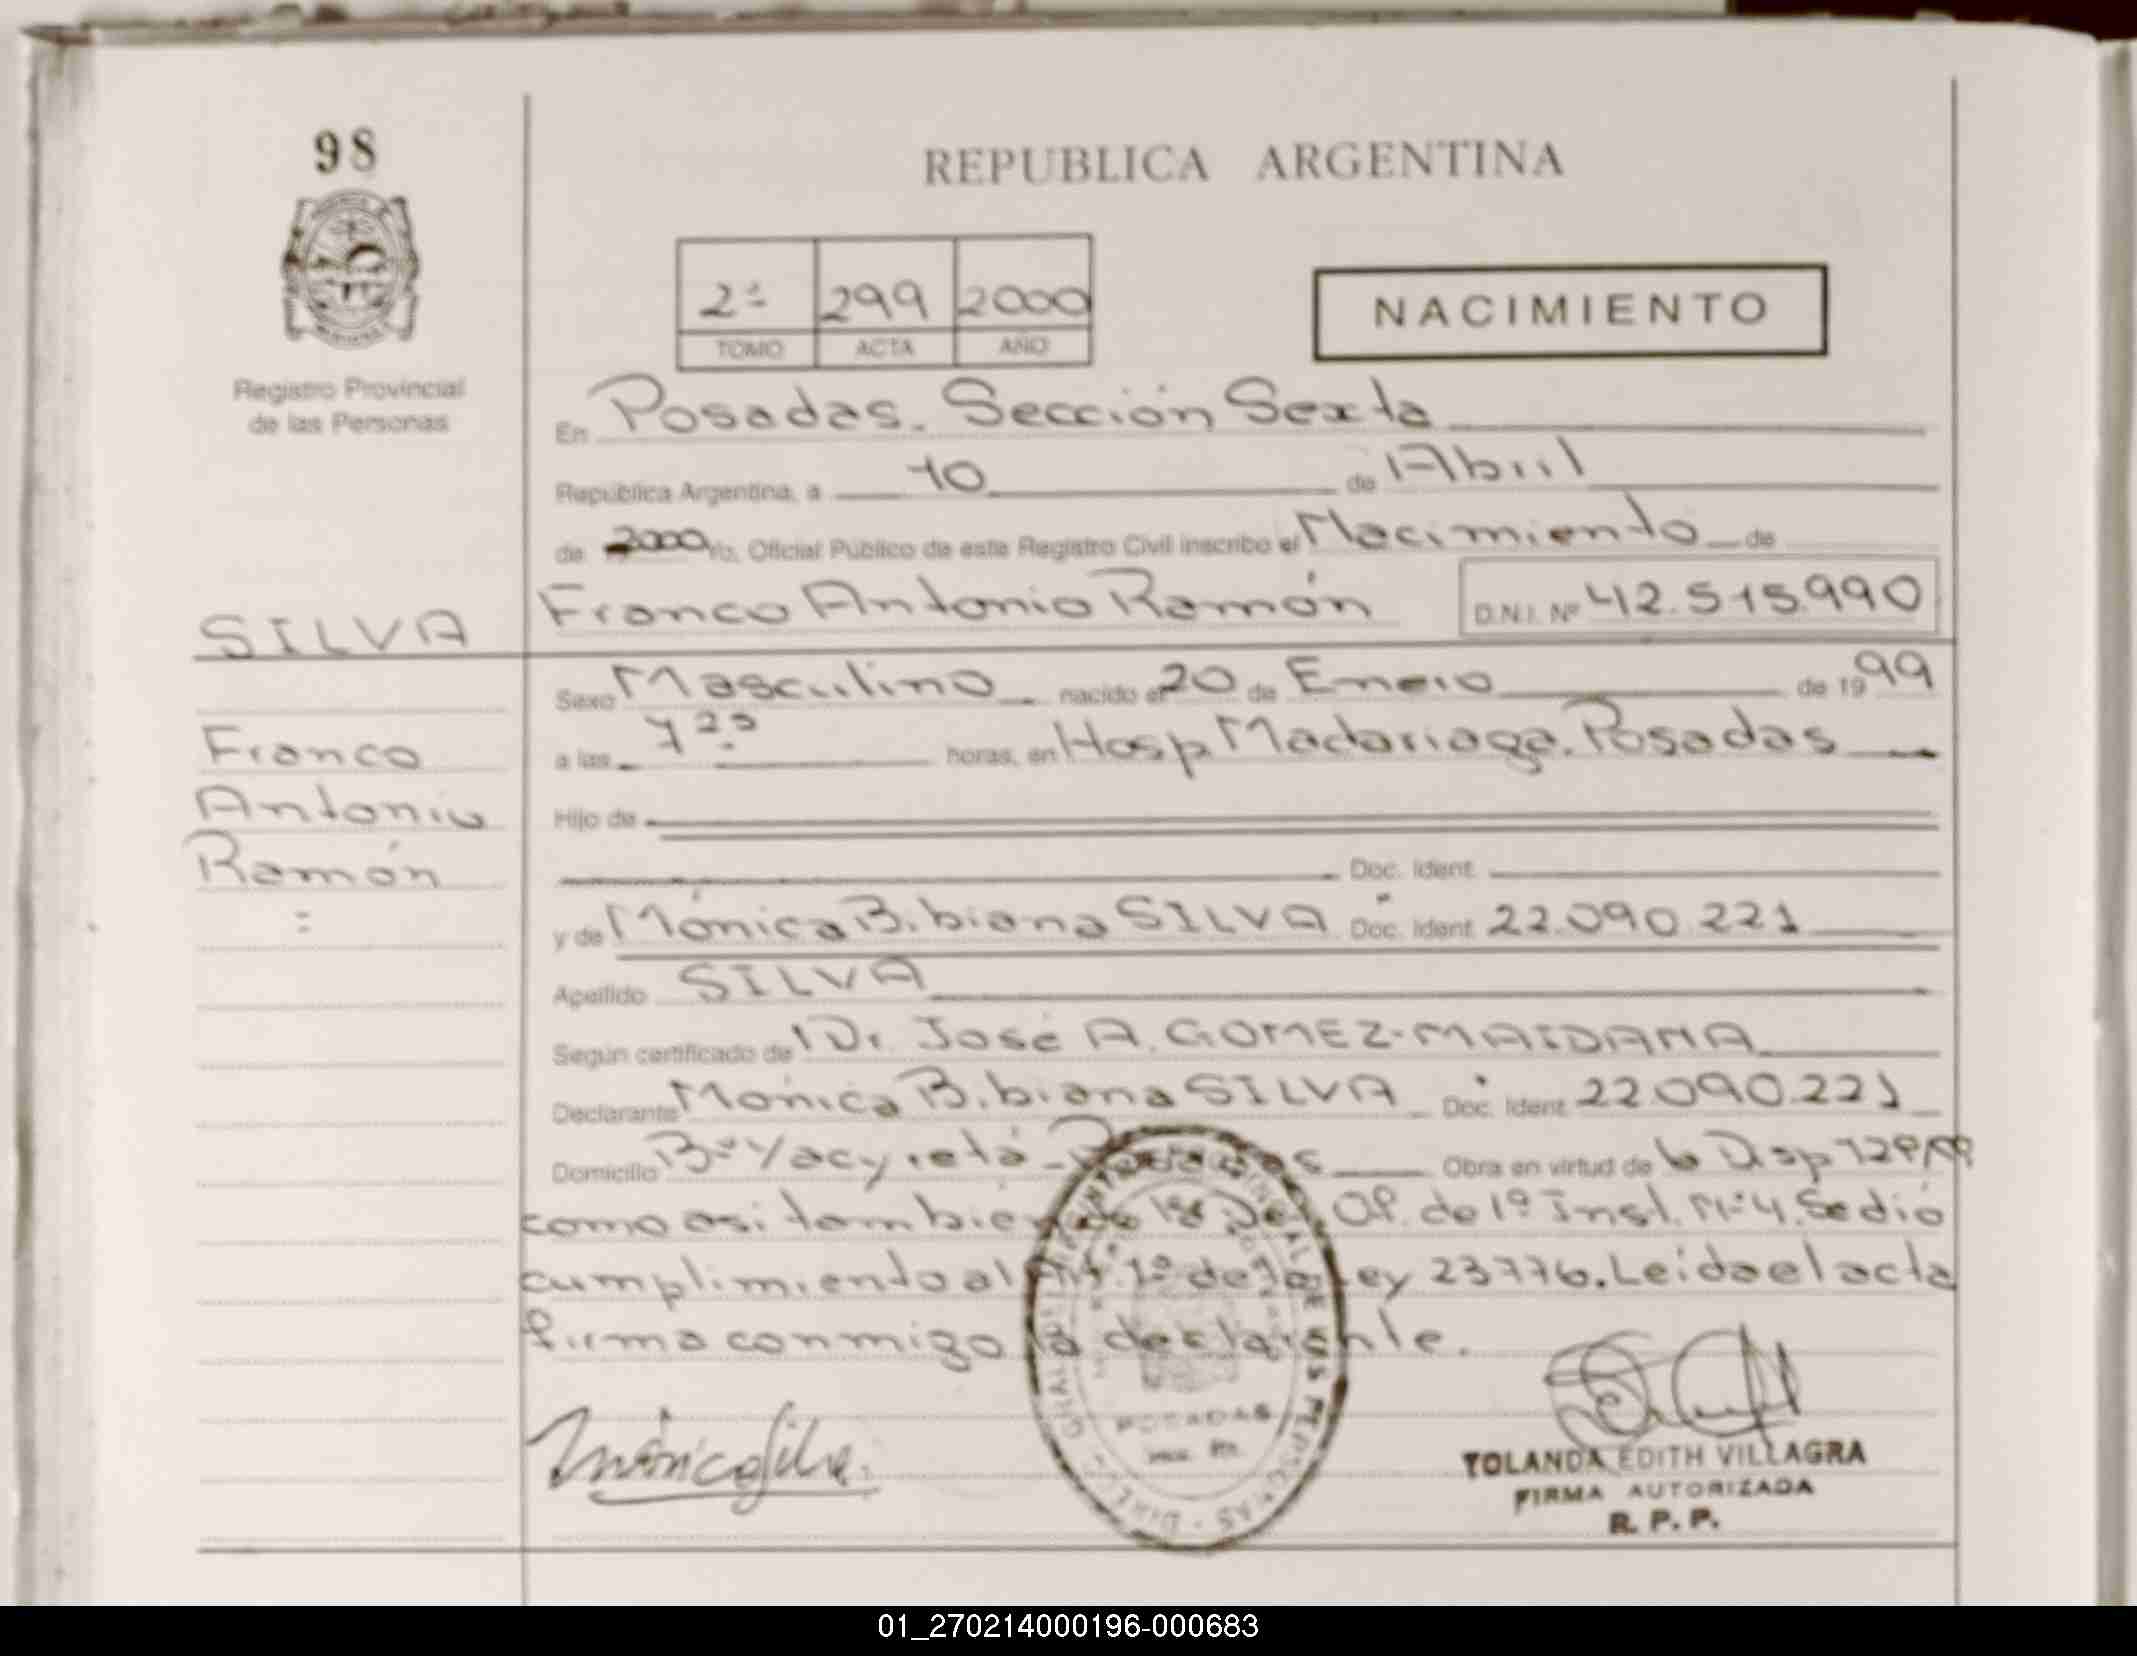 98
REPUBLICA ARGENTINA
2ª 299 2000
TOMO ACTA AÑO
NACIMIENTO
Registro Provincial
de las Personas
En Posadas. Sección Sexta
República Argentina, a 10 de Abril
de 2000 Yo, Oficial Público de este Registro Civil inscribo el Nacimiento de
SILVA Franco Antonio Ramón D.N.I. Nº 42.515.990
Sexo Masculino nacido el 20 de Enero de 1999
Franco a las horas, en Hosp Madariaga. Posadas
Antonio Hijo de
Ramón Doc. Ident.
y de Mónica Bibiana SILVA Doc. Ident 22.090.221
Apellido SILVA
Según certificado de Dr. José A. GOMEZ-MAIDANA
Declarante Mónica Bibiana SILVA Doc. Ident 22.090.221
Domicilio Bº Yacyretá - Posadas Obra en virtud de la Disp
como asi también de la Of. de 1º Inst. Nº 4. Se dió
cumplimiento al Art. 1º de la Ley 23776. Leida el acta
firma conmigo la declarante.
POSADAS
Mónica Silva.
YOLANDA EDITH VILLAGRA
FIRMA AUTORIZADA
R. P. P.
01_270214000196-000683